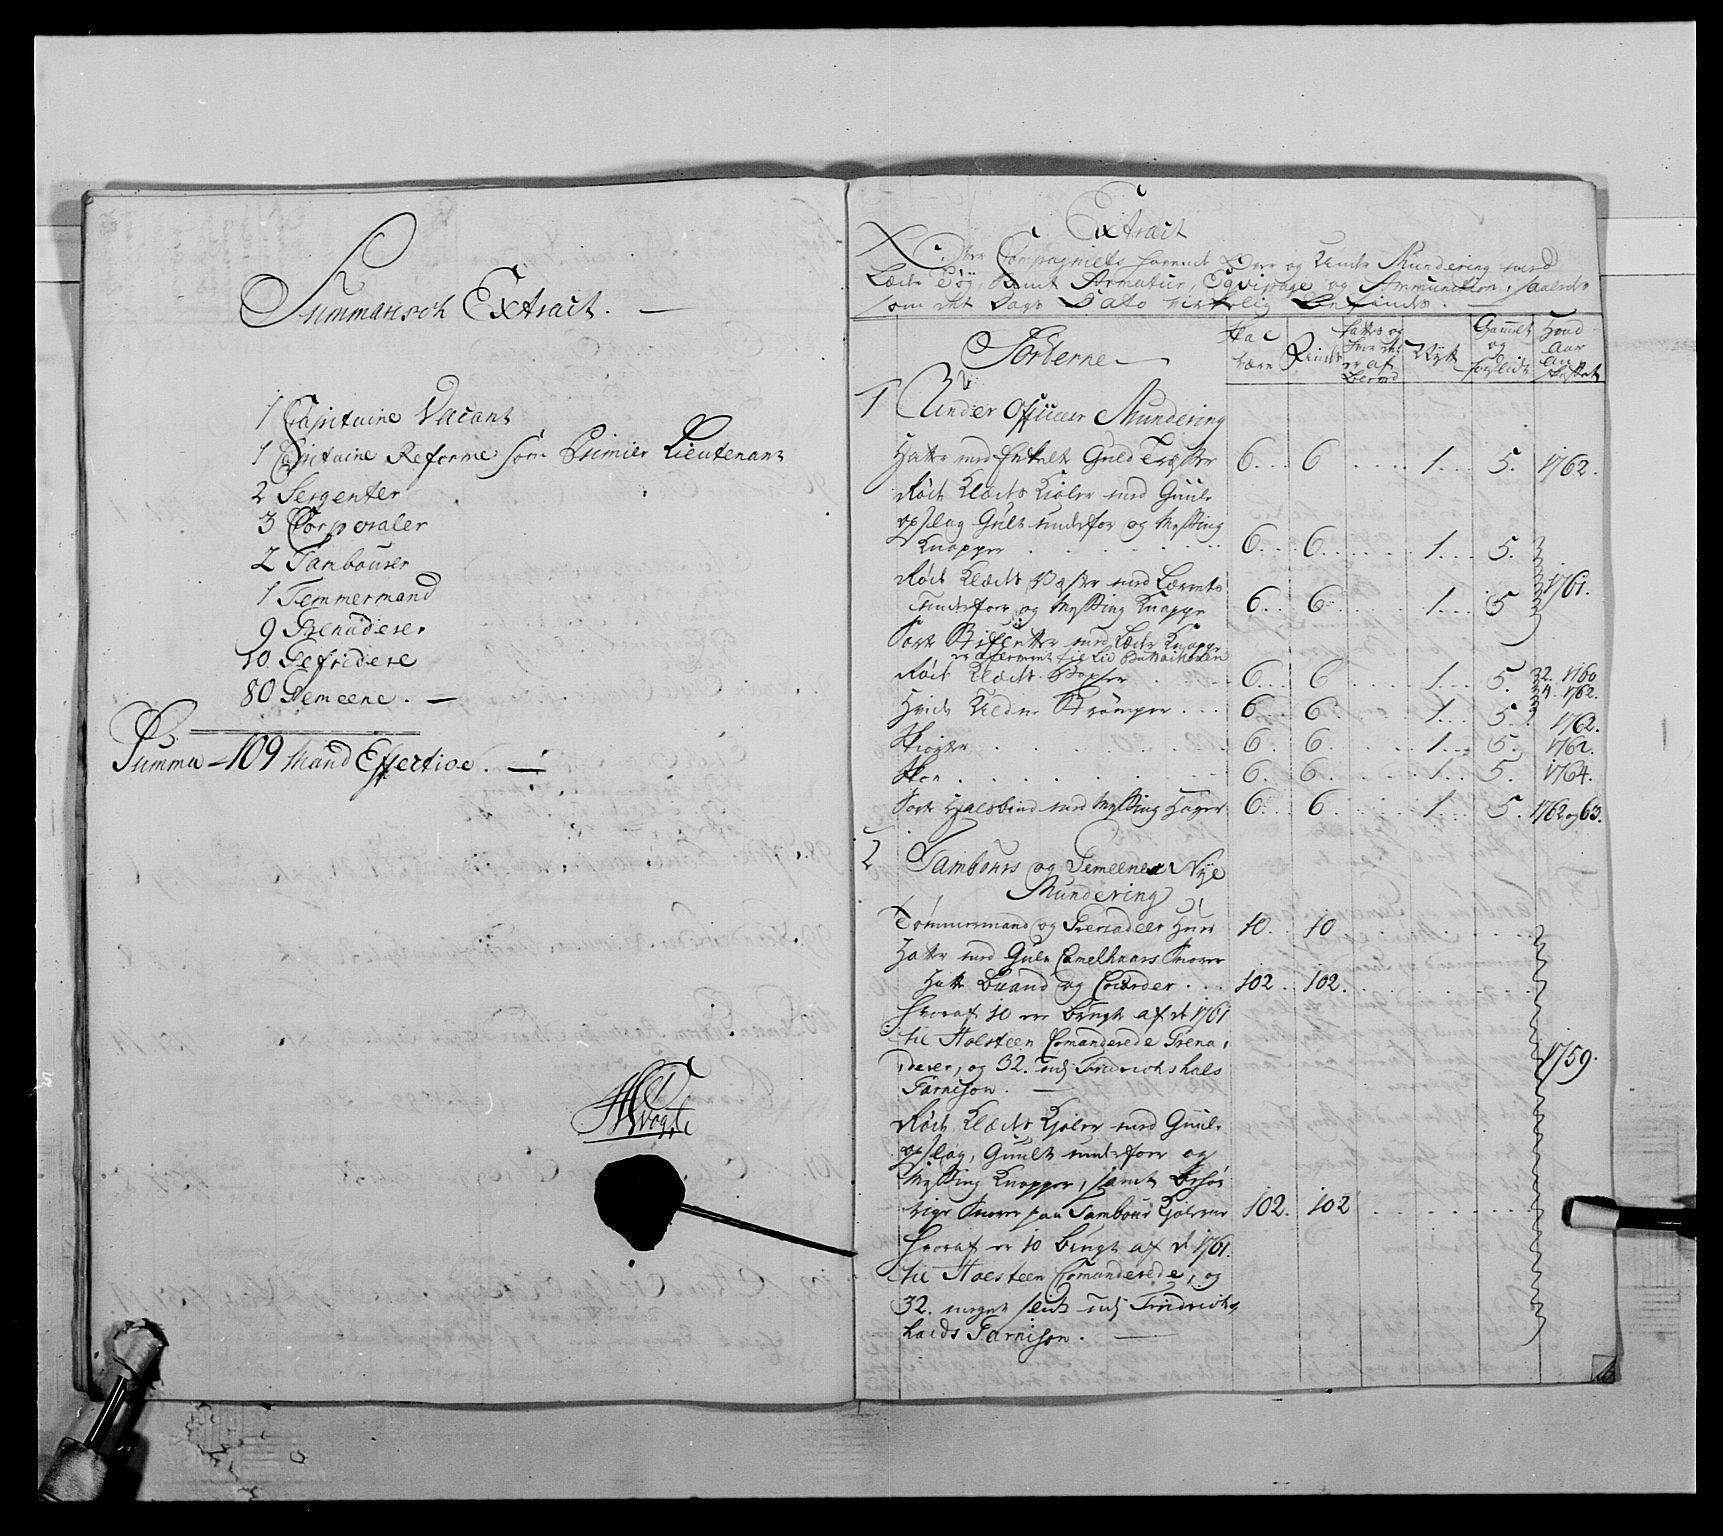 Summarisch Extract. —
1 Capitaine Vacant
1 Capitaine Reforme som Premier Lieutenant
2 Sergenter
3 Corporaler
2 Tambourer
1 Temmermand
9 Grenaderer
10 Gefridere
80 Gemeene. —
Summa — 109 Mand Effective. —
Extract
Over Compagniets havende Over og Under Mundering med
Læder Tøy, samt Armatur, Eqvipage og Ammunition, saaledes
som det Dags Dato virkelig befindes.
Sorterne
Skal være
Nytt
Gammelt og forslidt
Hvad Aar an skaffet
1 Under Officeer Mundering
Hatte med Enkelt Guld Tresser 6 6 1 5. 1762.
Røde Klædes Kioler med Guule
opslag Gult underfor og Messing
Knapper 6 6 1 5.
Røde Klædes Veste med Lærrets
underfoer og Messing Knapper 6 6 1 5 1761.
Sort Stifletter med Læder Knapper
Røde Klædes Boxer 6 6 1 5. 2. 1760
4. 1762.
Hvide Uldne Strømper 6 6 1 5. 1762.
Skiorter 6 6 1 5. 1762.
Skoe 6 6 1 5. 1764.
Sort Halsbind med Messing Hager 6 6 1 5. 1762 og 63.
2 Tambours og Gemeenes Nye
Mundering
Tømmermand og Grenadeer Huer 10 10
Hatte med Gule Camelhaars Snorer
Hatt Baand og Corder 102 102
hvoraf 10 er brugt af de 1761
til Holsteen Comanderede Grena-
derer, og 32. udj Fridrichshalds
Garnison. —
Røde Klædes Kioler med Guule
opslag, Guult underfoer og
Messing Knapper, samt behø-
rige Snorer paa Tambour Kiolerne 102. 102 1759.
hvoraf er 10 brugt af de 1761.
til Holsteen Comanderede, og
32. meget slidt udj Fridrichs
halds Garnison. —